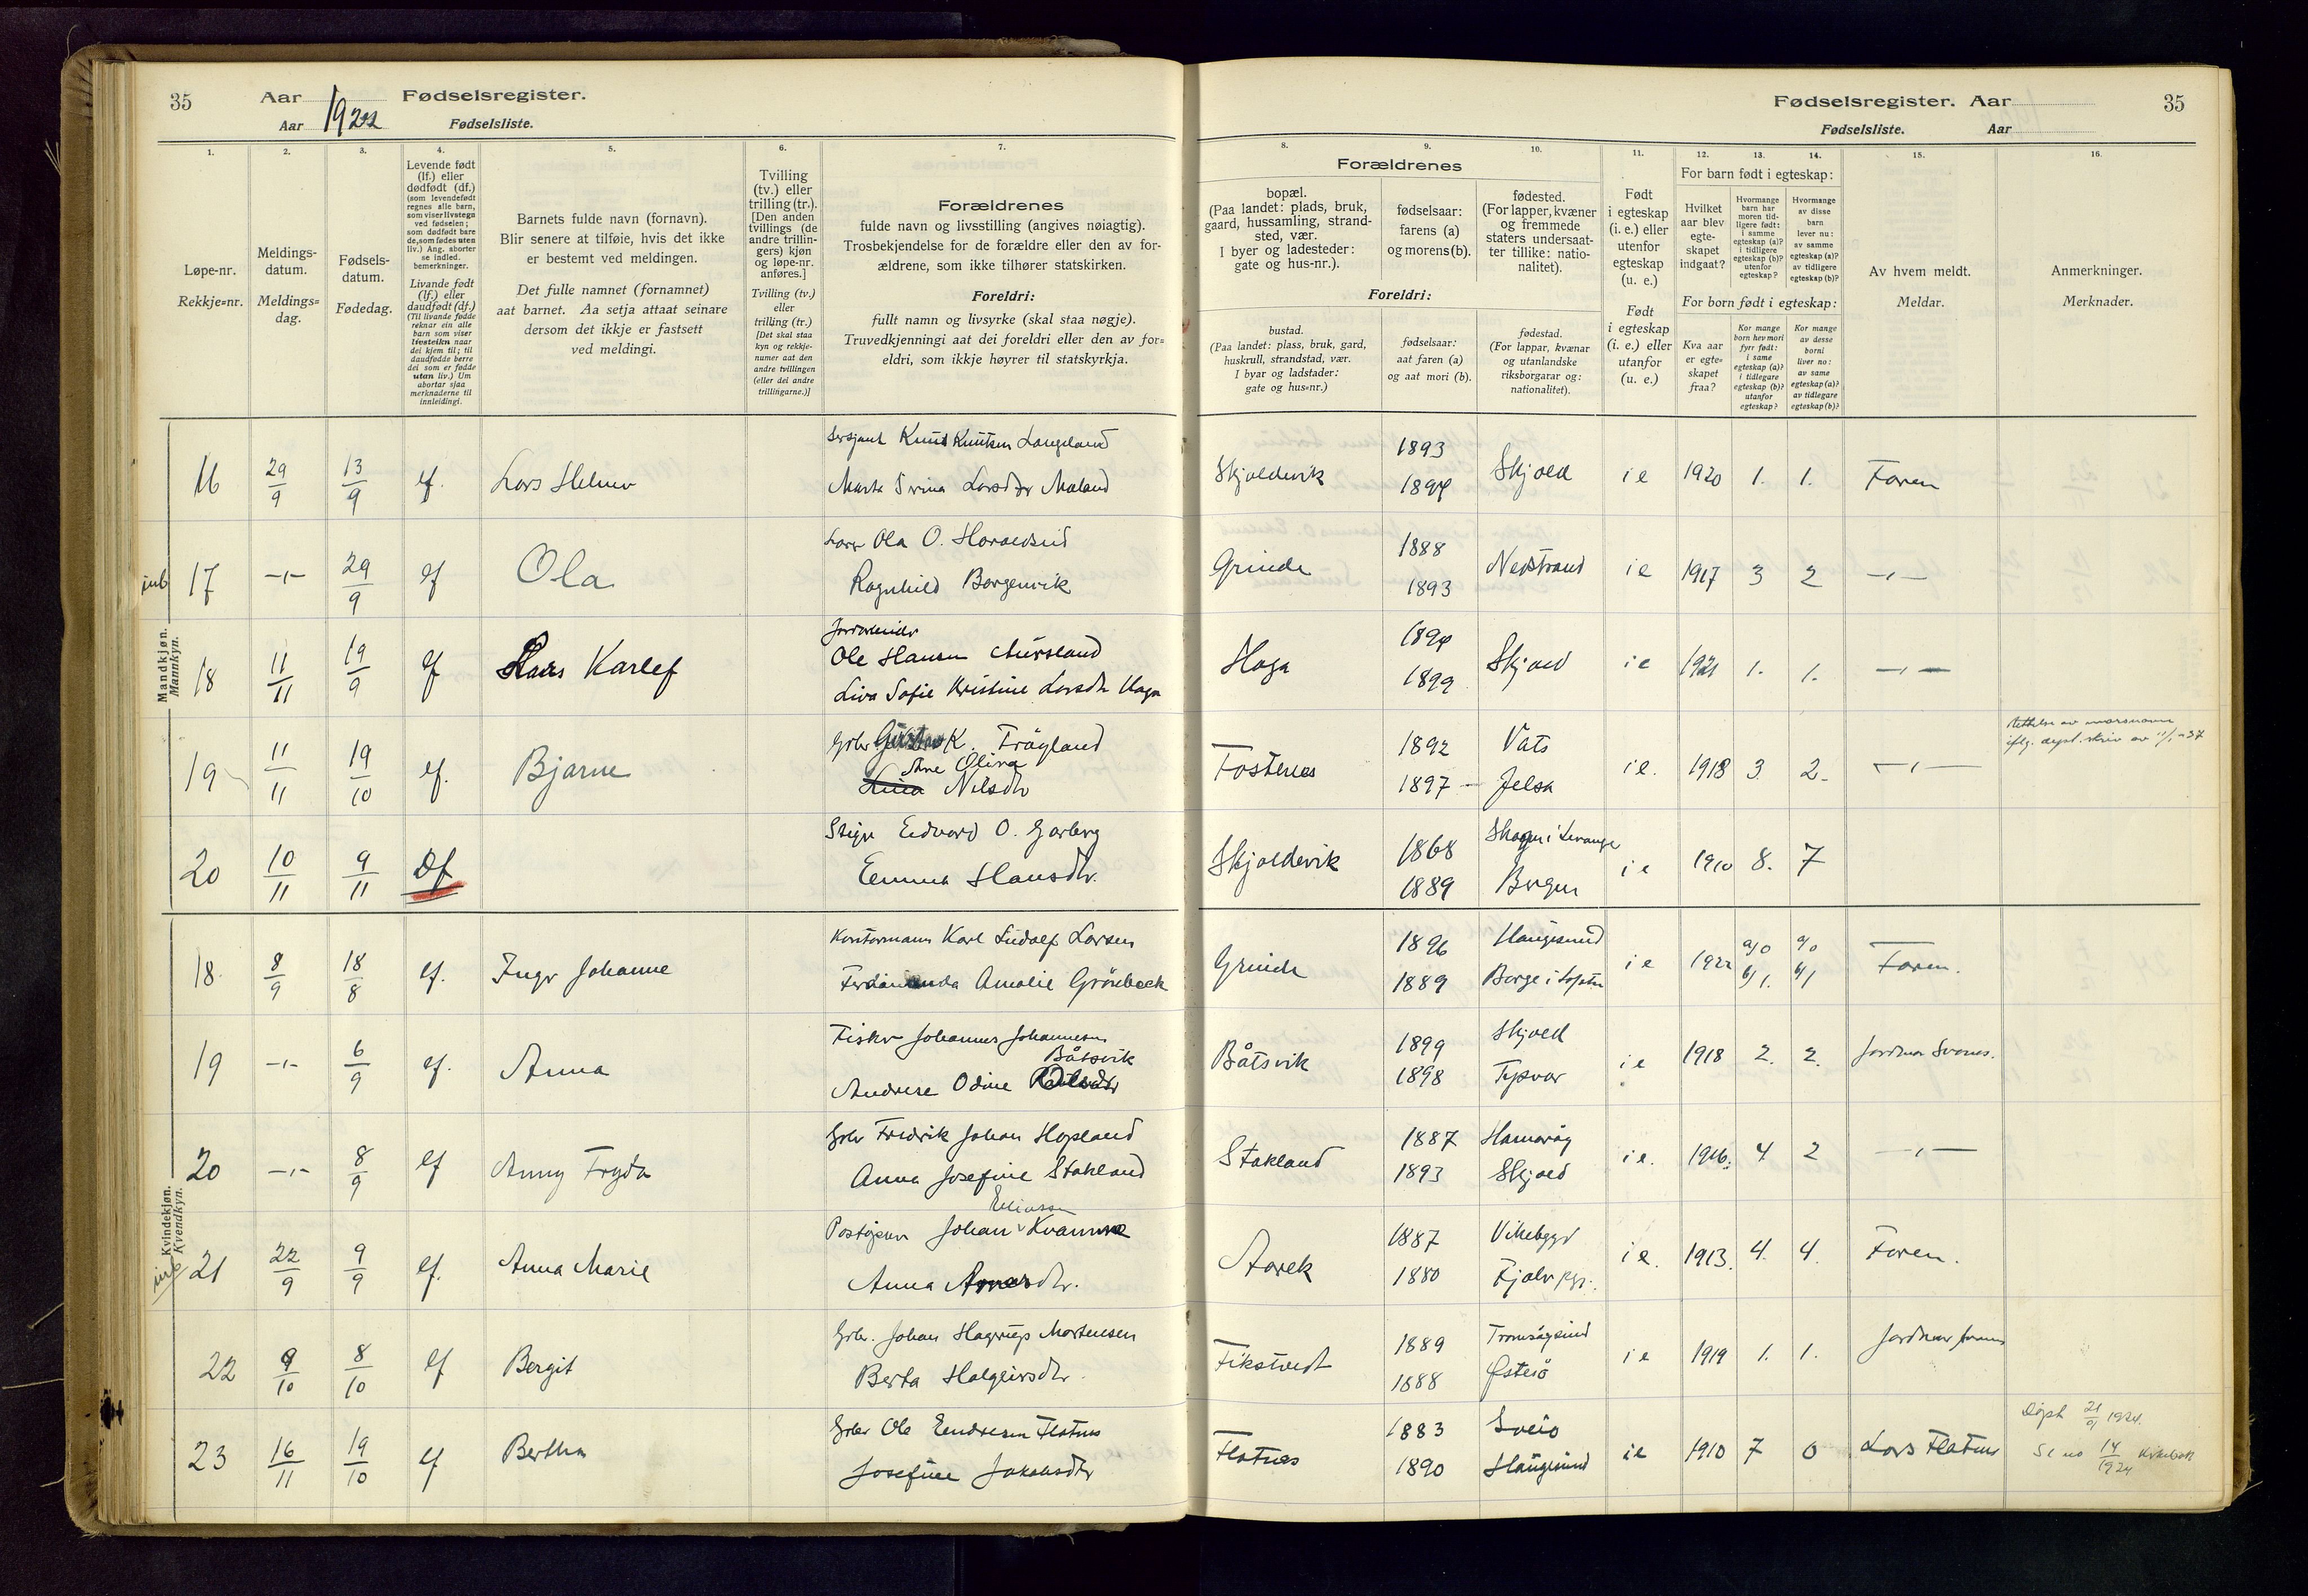 35 Aar 1922 Fødselsregister.
Aar Fødselsliste.
1.
Løpe-nr.
Rekkje=nr.
2.
Meldings-
datum.
Meldings=
dag.
3.
Fødsels-
datum.
Fødedag.
4.
Levende født
(lf.) eller
dødfødt (df.)
(som levendefødt
regnes alle barn,
som viser livstegn
ved fødselen;
som dødfødt bare
de, som fødes uten
liv.) Ang. aborter
se indled.
bemerkninger.
Livande født
(lf.) eller
daudfødt (df.)
(Til livande fødde
reknar ein alle
barn som viser
livsteikn naar
dei kjem til; til
daudfødde berre
dei som er fødde
utan liv.) Um
abortar sjaa
merknaderne til
innleidingi.
5.
Barnets fulde navn (fornavn).
Blir senere at tilføie, hvis det ikke
er bestemt ved meldingen.
Det fulle namnet (fornamnet)
aat barnet. Aa setja attaat seinare
dersom det ikkje er fastsett
ved meldingi.
6.
Tvilling
(tv.) eller
trilling (tr.).
[Den anden
tvillings (de
andre trillin-
gers) kjøn
og løpe-nr.
anføres.]
Tvilling (tv.)
eller
trilling (tr.)
[Det skal staa
kyn og rekkje-
numer aat den
andre tvillingen
(eller dei andre
trillingarne.)]
7.
Forældrenes
fulde navn og livsstilling (angives nøiagtig).
Trosbekjendelse for de forældre eller den av for-
ældrene, som ikke tilhører statskirken.
Foreldri:
fullt namn og livsyrke (skal staa nøgje).
Truvedkjenningi aat dei foreldri eller den av for=
eldri, som ikkje høyrer til statskyrkja.
Fødselsregister. Aar 35
Fødselsliste. Aar
8.
Forældrenes
bopæl.
(Paa landet: plads, bruk,
gaard, hussamling, strand-
sted, vær.
I byer og ladesteder:
gate og hus-nr.).
Foreldri:
bustad.
(Paa landet: plass, bruk, gard,
huskrull, strandstad, vær.
I byar og ladstader:
gate og hus=nr.)
9.
fødselsaar:
farens (a)
og morens (b).
fødselsaar:
aat faren (a)
og aat mori (b).
10.
fødested.
(For lapper, kvæner
og fremmede
staters undersaat-
ter tillike: natio-
nalitet).
fødestad.
(For lappar, kvænar
og utanlandske
riksborgarar og:
nationalitet).
11.
Født
i egteskap
(i. e.) eller
utenfor
egteskap
(u. e.)
Født
i egteskap
(i. e.) eller
utanfor
egteskap
(u. e.)
12. 13. 14.
For barn født i egteskap:
Hvilket
aar blev
egte-
skapet
indgaat?
Hvormange
barn har
moren tid-
ligere født:
i samme
egteskap (a)?
i tidligere
egteskap (b)?
utenfor
egteskap?
Hvormange
av disse
barn
lever nu:
av samme
egteskap (a)?
av tidligere
egteskap (b)?
For born født i egteskap:
Kva aar
er egte=
skapet
fraa?
Kor mange
born hev mori
fyrr født:
i same
egteskap (a)?
i tidlegare
egteskap (b)?
utanfor
egteskap?
Kor mange
av desse
borni
liver no:
av same
egteskap (a)?
av tidlegare
egteskap (b)?
15.
Av hvem meldt.
Meldar.
16.
Anmerkninger.
Merknader.
Mandkjøn.
Mannkyn.
16 29/9 13/9 lf. Lars Helmer Sersjant Knut Knutsen Langeland Skjoldevik 1893 Skjold i e 1920 1. 1. Faren
Marta Larsdtr Mæland 1894
17 -"- 29/9 lf Ola Ola O. Haraldseid Grinde 1888 Nedstrand i e 1917 3 2 -"-
Ragnhild Borgenvik 1893
18 11/11 19/9 lf Karlef Ole Hansen Haga 1894 Skjold i e 1921 1. 1. -"-
Sofie Kristine Larsdtr Haga 1899
19 11/11 19/10 lf. Bjarne Gbr K. Frøyland Fosternes 1892 Vats i e. 1918 3 2 -"-
Ane Olina
Lina Nilsdtr 1897 Jelsa
20 10/11 9/11 Df Edvard O. Garberg Skjoldevik 1868 Skogn i Levanger i e 1910 8. 7
Emma Hansdtr. 1889 Bergen
Kvindekjøn.
Kvendkyn.
18 8/9 18/8 lf. Inger Johanne Kontormann Karl Ludolf Larsen Grinde 1896 Haugesund i e 1922 a/0 a/0 Faren.
Amalie Grönbeck 1889 Borge i Lofoten b/1. b/1
19 -"- 6/9 lf. Anna Fisker Johannes Johannesen Båtsvik 1899 Skjold i e 1918 2. 2. Jordmor
Båtsvik
Andrea Odine 1898 Tysvær
20 -"- 8/9 lf Anny Fryda Gbr Fredrik Johan Hopland Stakland 1887 i e. 1916. 4 2 -"-
Anna Josefine Stakland 1893 Skjold
21 22/9 9/9 lf. Anna Marie Johan Eliassen Kvamme Aarek 1887 Vikebygd i e. 1913. 4. 4. Faren.
Anna 1880
22 9/10 8/10 lf Bergit Gbr. Johan Hagrup Mortensen Fikstvedt 1889 Tromsøysund i e 1919 1. 1. Jordmor
Berta Halgeirsdtr. 1888 Østesø
23 16/11 19/10 lf Bertha Gbr Ole Endresen Flatnes Flatnes 1883 Sveio i e 1910 7 0 Lars Flatnes Døpt 21/9 1924.
Josefine Jakobsdtr 1890 Haugesund 14/1924 Kirkebok